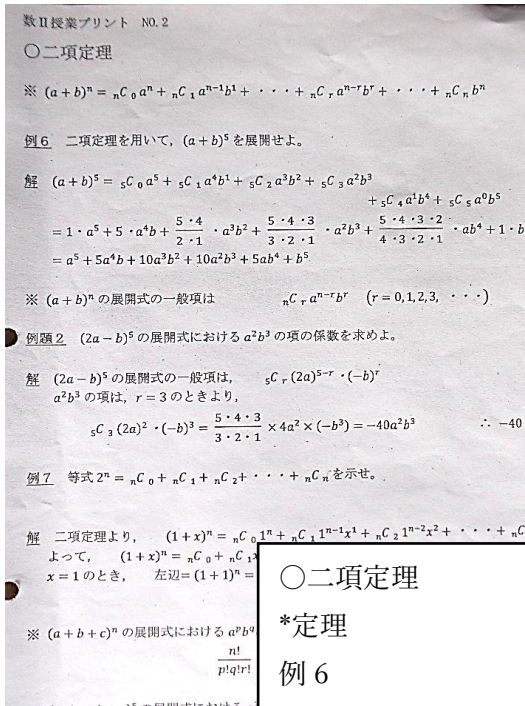 数Ⅱ授業プリント NO.2
○二項定理
※ (a + b)ⁿ = ₙC₀aⁿ + ₙC₁aⁿ⁻¹b¹ + ・・・+ ₙCᵣaⁿ⁻ʳbʳ + ・・・+ ₙCₙbⁿ
例6 二項定理を用いて，(a + b)⁵ を展開せよ。
解 (a + b)⁵ = ₅C₀a⁵ + ₅C₁a⁴b¹ + ₅C₂a³b² + ₅C₃a²b³
+ ₅C₄a¹b⁴ + ₅C₅a⁰b⁵
= 1・a⁵ + 5・a⁴b + 5・4/2・1 ・a³b² + 5・4・3/3・2・1 ・a²b³ + 5・4・3・2/4・3・2・1 ・ab⁴ + 1・b
= a⁵ + 5a⁴b + 10a³b² + 10a²b³ + 5ab⁴ + b⁵
※ (a + b)ⁿ の展開式の一般項は ₙCᵣaⁿ⁻ʳbʳ (r = 0,1,2,3, ・・・)
例題2 (2a − b)⁵ の展開式における a²b³ の項の係数を求めよ。
解 (2a − b)⁵ の展開式の一般項は， ₅Cᵣ(2a)⁵⁻ʳ・(−b)ʳ
a²b³ の項は，r = 3 のときより，
₅C₃(2a)²・(−b)³ = 5・4・3/3・2・1 × 4a² × (−b³) = −40a²b³ ∴ −40
例7 等式 2ⁿ = ₙC₀ + ₙC₁ + ₙC₂ + ・・・+ ₙCₙ を示せ。
解 二項定理より， (1 + x)ⁿ = ₙC₀1ⁿ + ₙC₁1ⁿ⁻¹x¹ + ₙC₂1ⁿ⁻²x² + ・・・+ ₙC
よって， (1 + x)ⁿ = ₙC₀ + ₙC₁x
x = 1 のとき， 左辺= (1 + 1)ⁿ =
※ (a + b + c)ⁿ の展開式における aᵖb
n!/p!q!r!
○二項定理
*定理
例 6